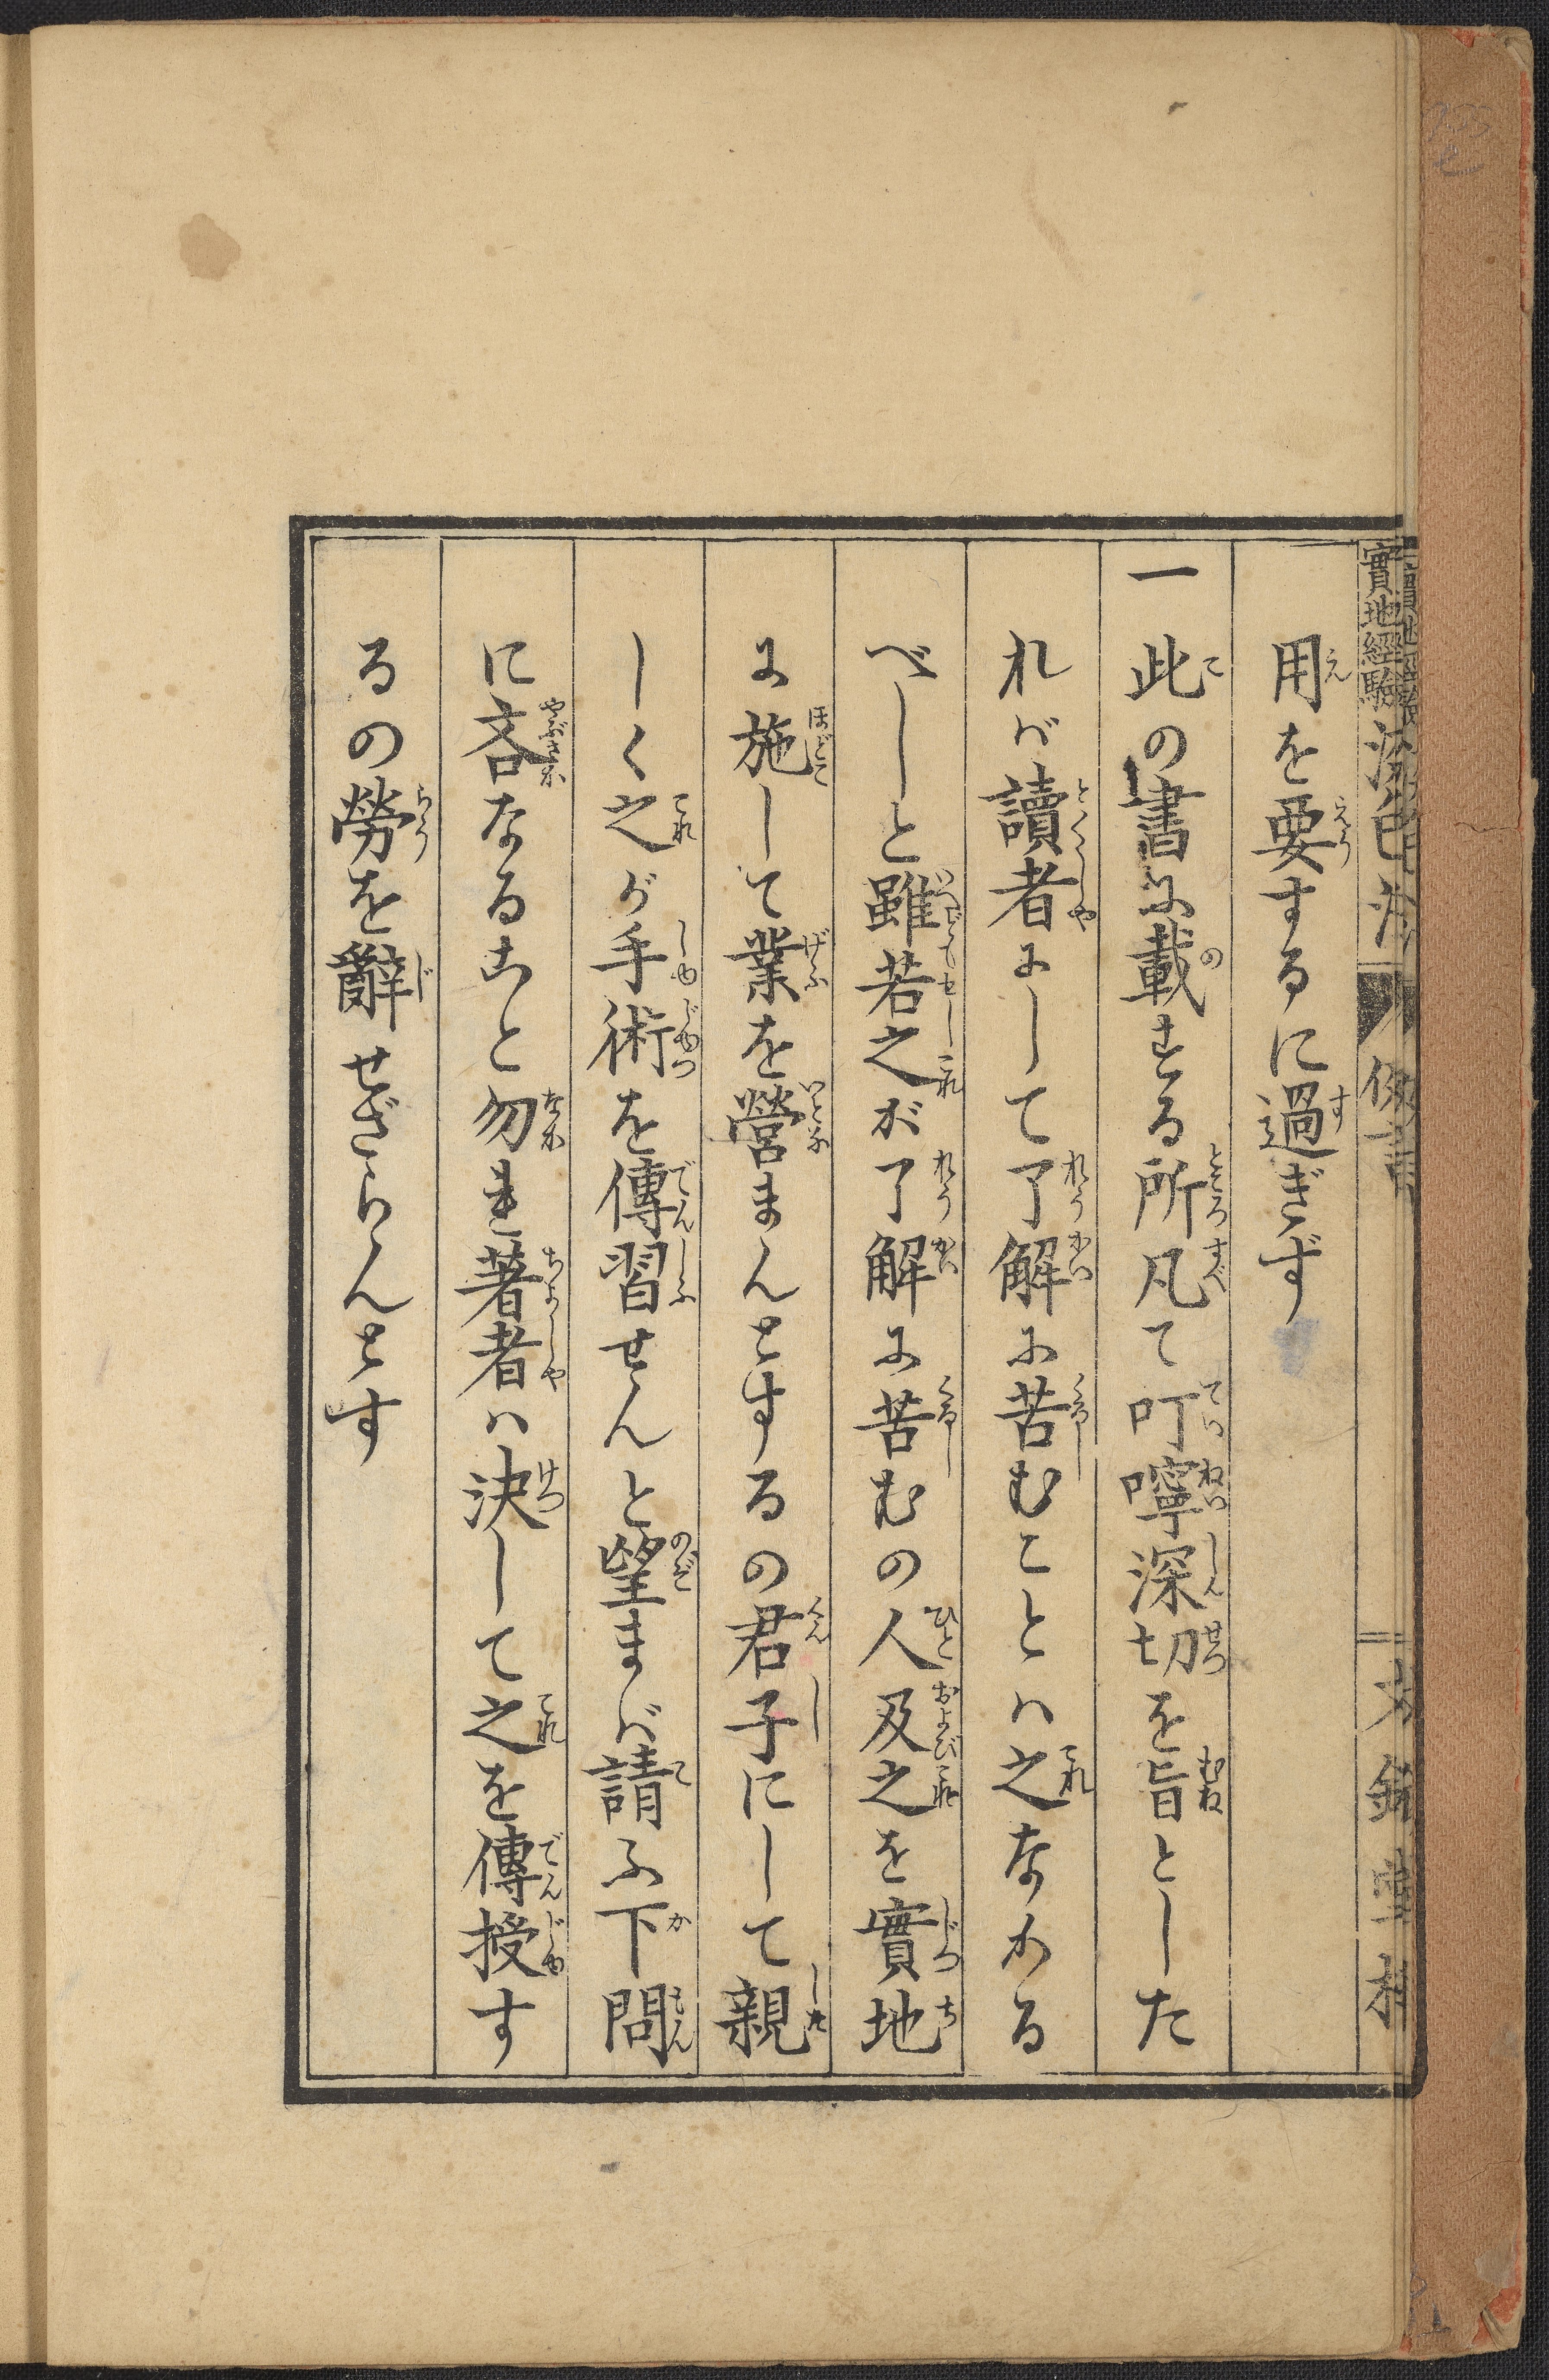 實地經驗
用を要するに過ぎず
一此の書に載する所凡て叮嚀深切を旨とした
れば讀者にして了解に苦むことハ之なかる
べしと雖若之が了解に苦むの人及之を實地
に施して業を營まんとするの君子にして親
しく之が手術を傳習せんと望まば請ふ下問
に吝なること勿れ著者ハ決して之を傳授す
るの勞を辭せざらんとす